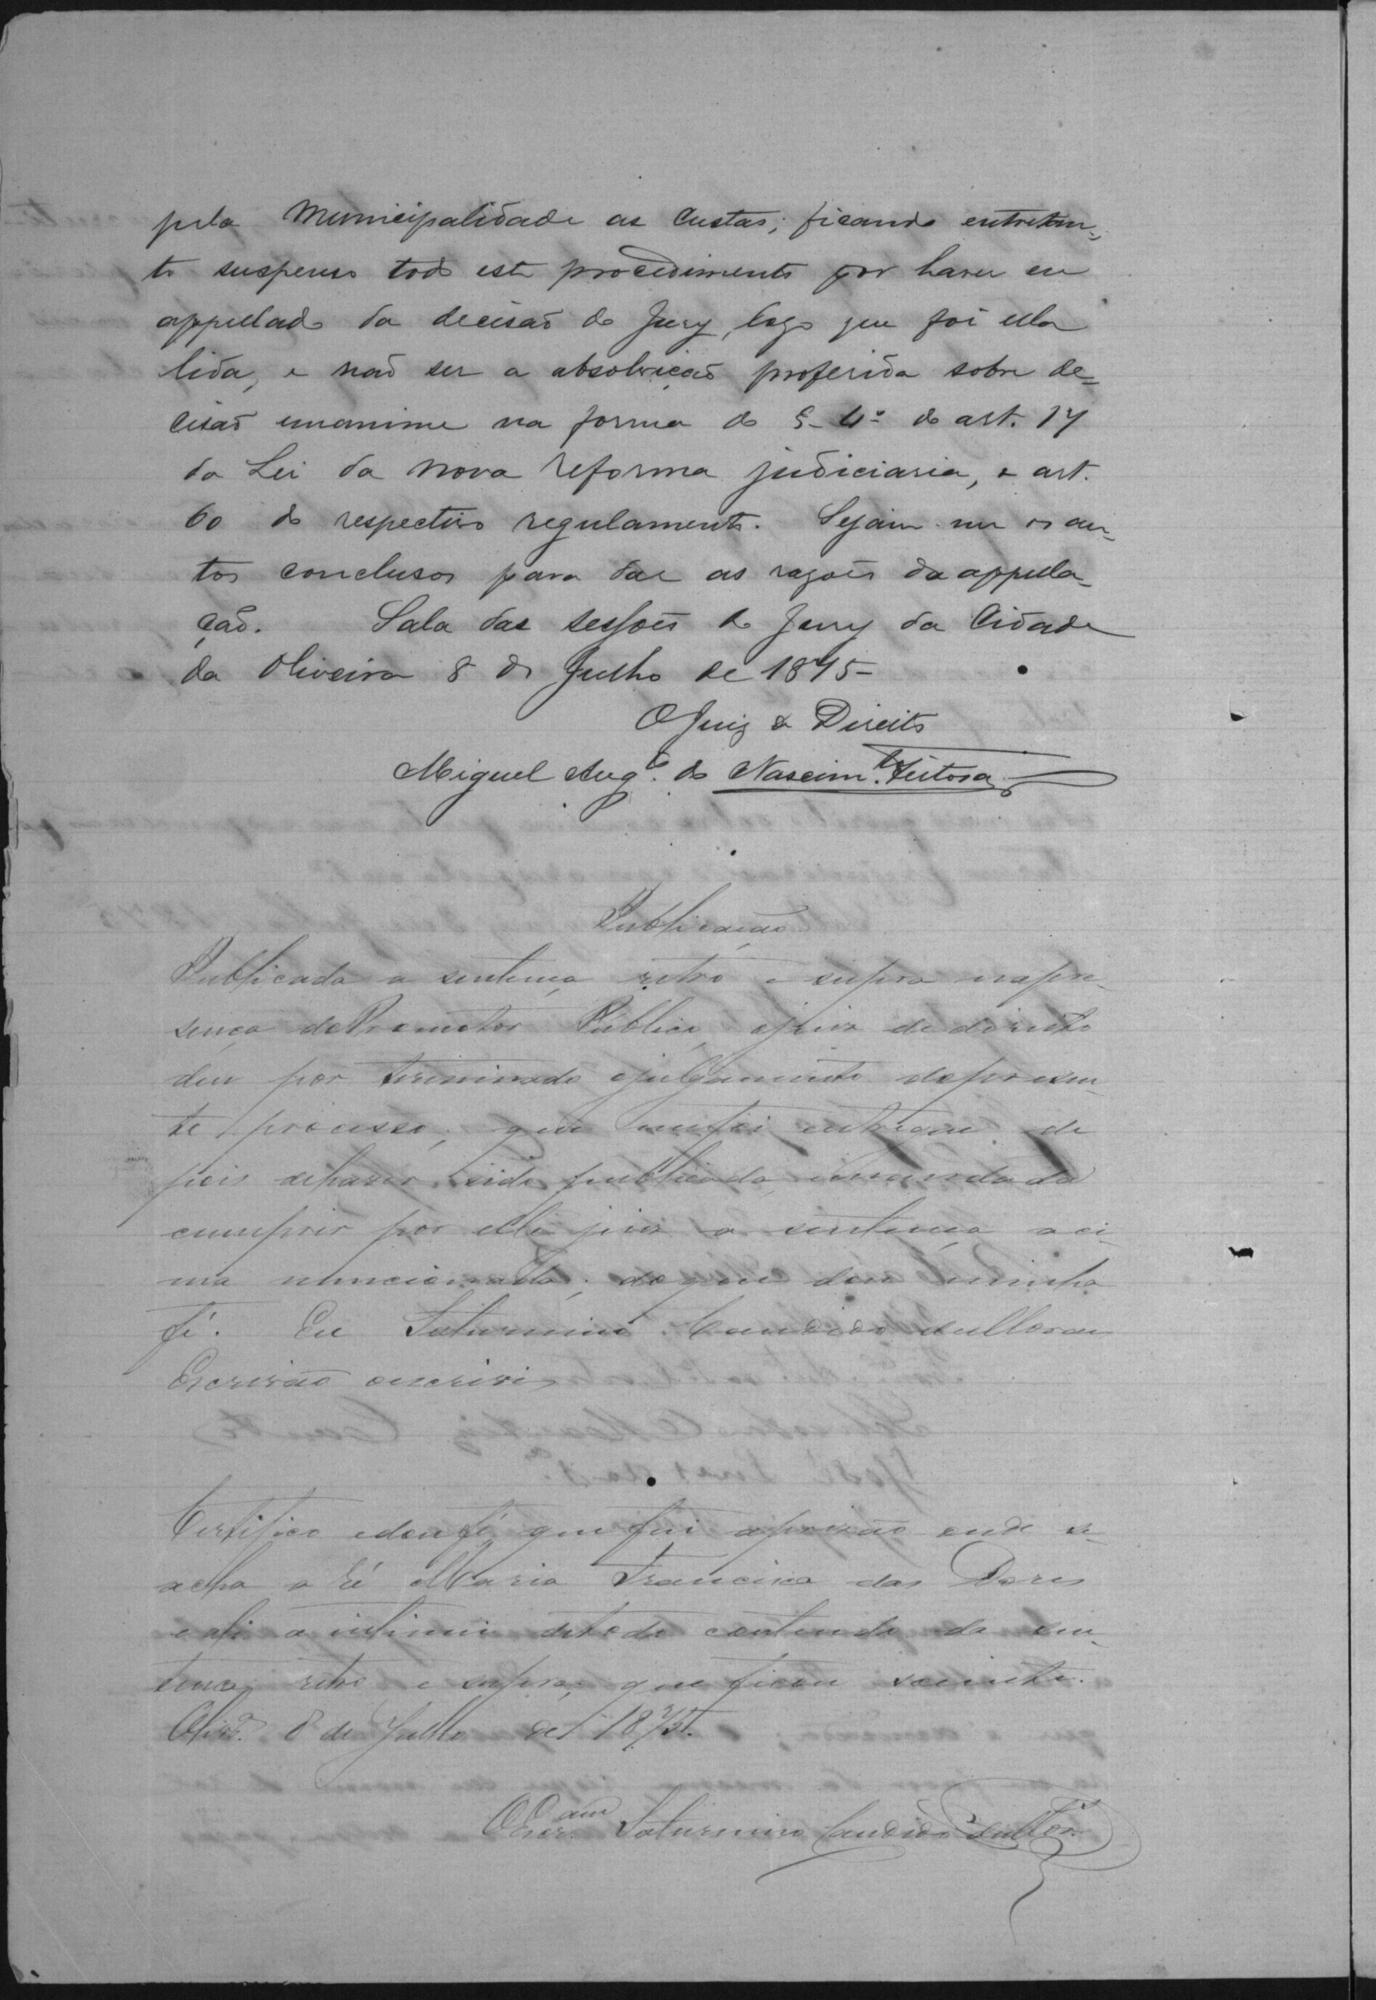 pela Municipalidade as custas; ficando entretan-
to suspenso todo este procedimento por haver eu
appellado da decisão do Jury, logo que foi ella
lida, e não ser a absolvição proferida sobre de-
cisão unanime na forma do § 4º do art. 17
da Lei da nova reforma judiciaria, e art.
60 do respectivo regulamento. Sejam-me os au-
tos conclusos para dar as rasões da appella-
ção. Sala das sessões do Jury da Cidade
da Oliveira 8 de Julho de 1875-
O Juiz de Direito
Miguel Augto. do Nascimto. Feitosa
Publicação
Publicada a sentença retro e supra na pre-
sença do Promotor Publico, o juiz de direito
deu por terminado o julgamento do presen-
te processo, que me foi entregue de
pois de haver sido publicada, e mandada
cumprir por elle juiz a sentença aci-
ma mencionada; do que dou minha
fé. Eu Saturnino Candido
Escrivão escrivi
Certifico e dou fé, que fui a prisão onde se
acha a Ré Maria Francisca das Dores
e ahi a intimei de todo contendo da sen-
tença retro e supra, que ficou sciente.
Olivra. 8 de Julho de 1875.
O Escram. Saturnino Candido